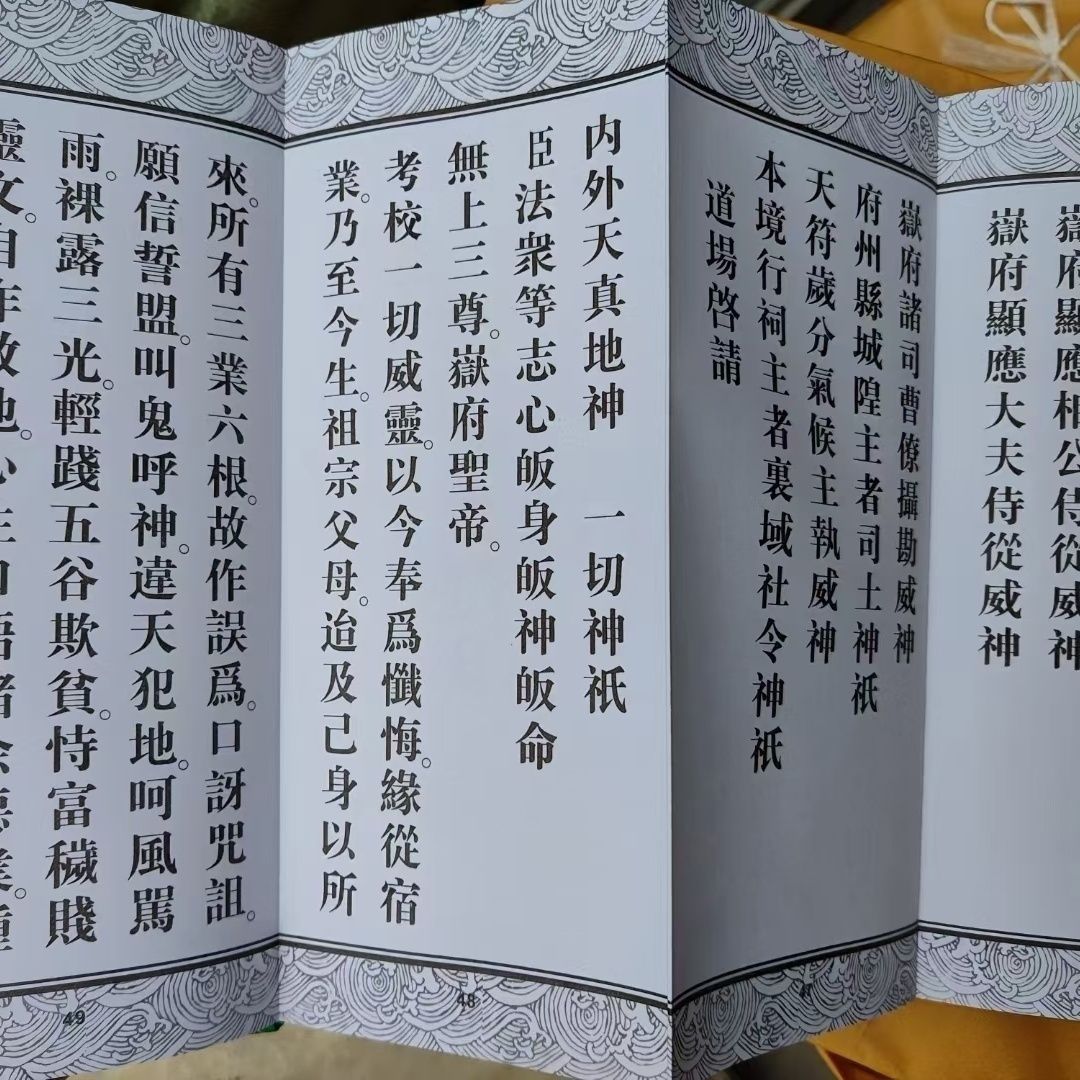 嶽府顯應相公侍從威神
嶽府顯應大夫侍從威神
嶽府諸司曹僚攝勘威神
府州縣城隍主者司土神祇
天符歲分氣候主執威神
本境行祠主者裏域社令神祇
道場啓請
47
内外天真地神　一切神祇
臣法衆等志心皈身皈神皈命
無上三尊。嶽府聖帝。
考校一切威靈。以今奉爲懺悔。緣從宿
業。乃至今生。祖宗父母。迨及己身以所
48
來。所有三業六根。故作誤爲。口訝咒詛。
願信誓盟。叫鬼呼神。違天犯地。呵風罵
雨。裸露三光。輕踐五谷欺貧。恃富穢賤
靈文。自作教他。心生口語諸余惡業。種
49